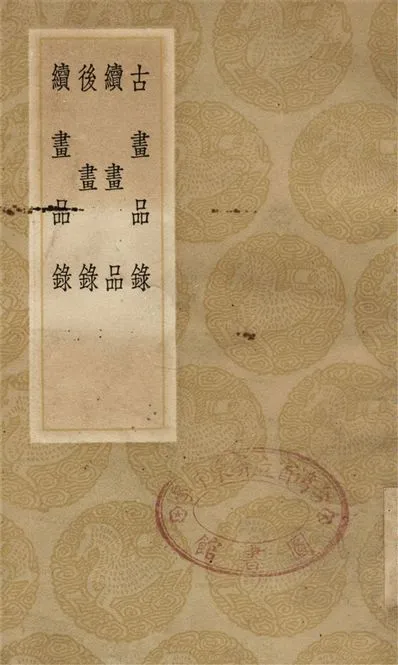 古畫品錄
續畫品
後畫錄
續畫品錄
圖書館